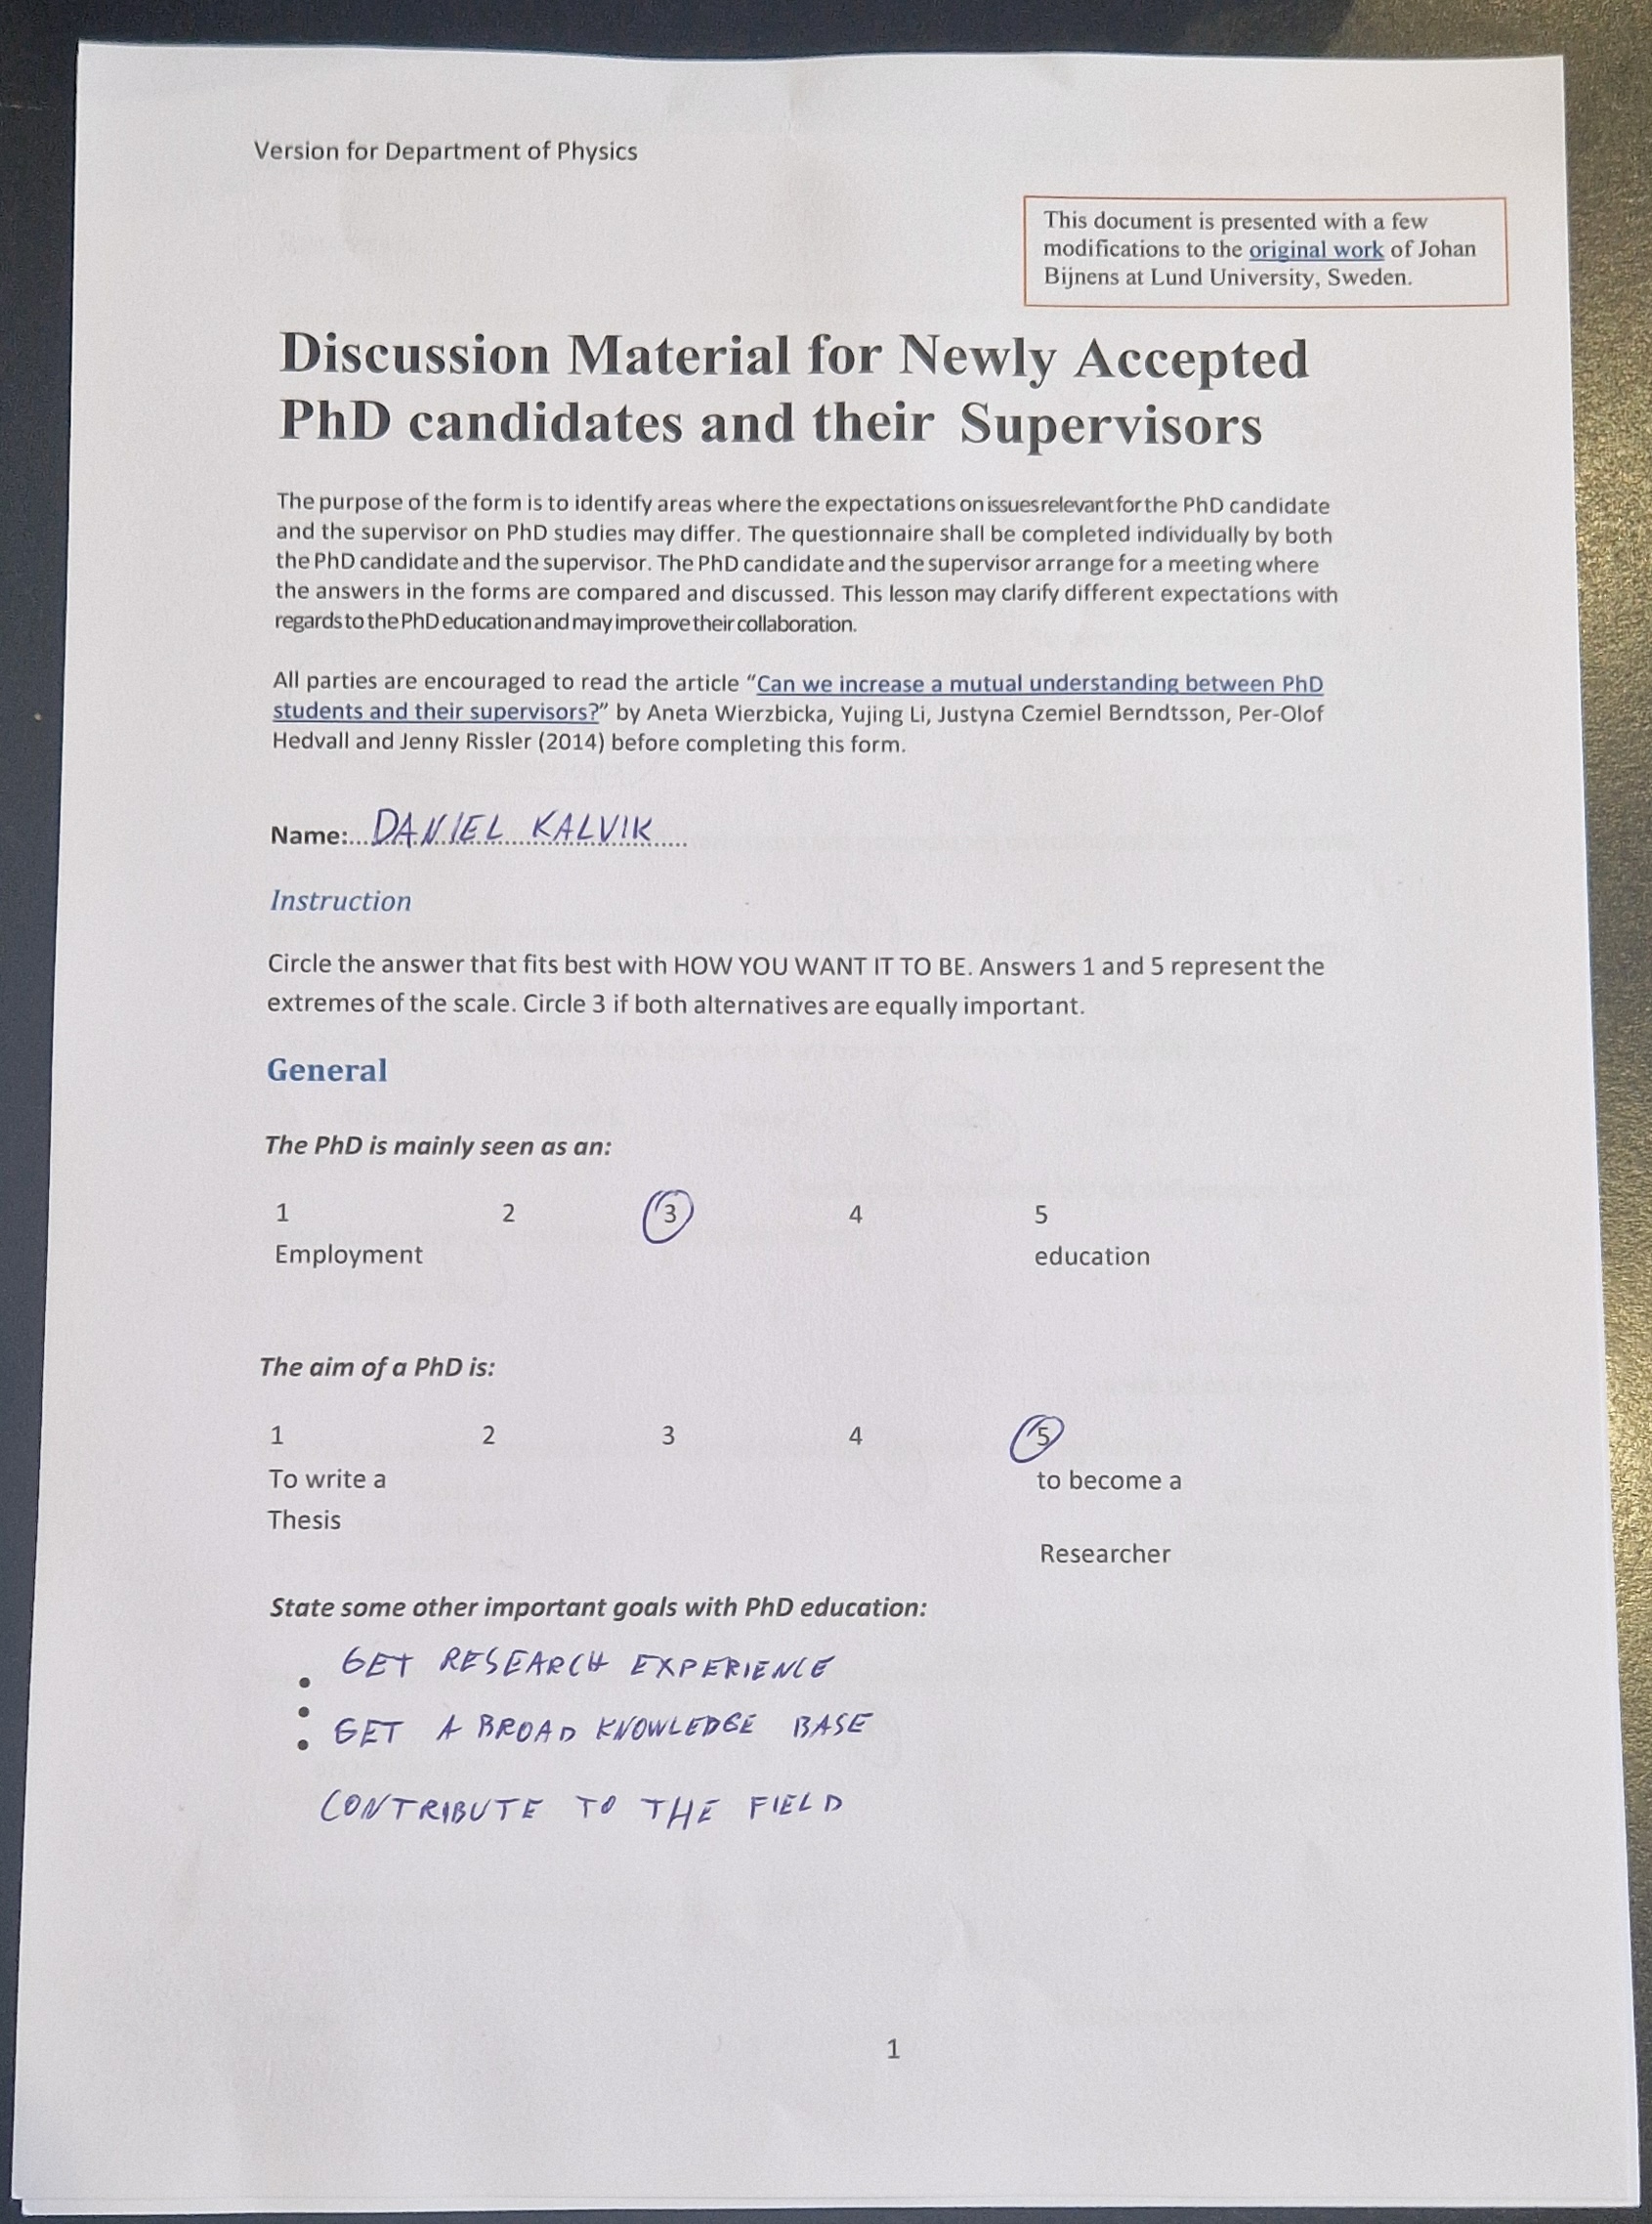 Version for Department of Physics
This document is presented with a few
modifications to the original work of Johan
Bijnens at Lund University, Sweden.
Discussion Material for Newly Accepted
PhD candidates and their Supervisors
The purpose of the form is to identify areas where the expectations on issues relevant for the PhD candidate
and the supervisor on PhD studies may differ. The questionnaire shall be completed individually by both
the PhD candidate and the supervisor. The PhD candidate and the supervisor arrange for a meeting where
the answers in the forms are compared and discussed. This lesson may clarify different expectations with
regards to the PhD education and may improve their collaboration.
All parties are encouraged to read the article “Can we increase a mutual understanding between PhD
students and their supervisors?” by Aneta Wierzbicka, Yujing Li, Justyna Czemiel Berndtsson, Per-Olof
Hedvall and Jenny Rissler (2014) before completing this form.
Name: DANIEL KALVIK
Instruction
Circle the answer that fits best with HOW YOU WANT IT TO BE. Answers 1 and 5 represent the
extremes of the scale. Circle 3 if both alternatives are equally important.
General
The PhD is mainly seen as an:
1 2 3 4 5
Employment education
The aim of a PhD is:
1 2 3 4 5
To write a to become a
Thesis
Researcher
State some other important goals with PhD education:
• GET RESEARCH EXPERIENCE
•
• GET A BROAD KNOWLEDGE BASE
CONTRIBUTE TO THE FIELD
1